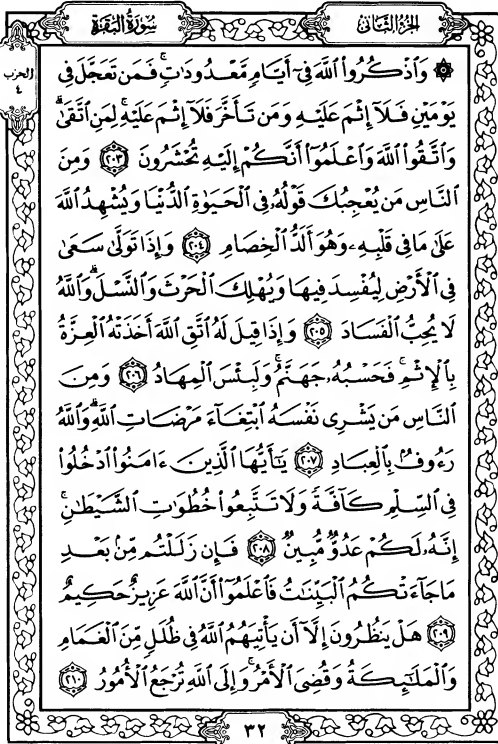 سُورَةُ البَقَرَةِ
الجُزءُ الثَّانِي
الحزب
٤
۞ وَٱذۡكُرُواْ ٱللَّهَ فِيٓ أَيَّامٖ مَّعۡدُودَٰتٖۚ فَمَن تَعَجَّلَ فِي
يَوۡمَيۡنِ فَلَآ إِثۡمَ عَلَيۡهِ وَمَن تَأَخَّرَ فَلَآ إِثۡمَ عَلَيۡهِۚ لِمَنِ ٱتَّقَىٰۗ
وَٱتَّقُواْ ٱللَّهَ وَٱعۡلَمُوٓاْ أَنَّكُمۡ إِلَيۡهِ تُحۡشَرُونَ ٢٠٣ وَمِنَ
ٱلنَّاسِ مَن يُعۡجِبُكَ قَوۡلُهُۥ فِي ٱلۡحَيَوٰةِ ٱلدُّنۡيَا وَيُشۡهِدُ ٱللَّهَ
عَلَىٰ مَا فِي قَلۡبِهِۦ وَهُوَ أَلَدُّ ٱلۡخِصَامِ ٢٠٤ وَإِذَا تَوَلَّىٰ سَعَىٰ
فِي ٱلۡأَرۡضِ لِيُفۡسِدَ فِيهَا وَيُهۡلِكَ ٱلۡحَرۡثَ وَٱلنَّسۡلَۚ وَٱللَّهُ
لَا يُحِبُّ ٱلۡفَسَادَ ٢٠٥ وَإِذَا قِيلَ لَهُ ٱتَّقِ ٱللَّهَ أَخَذَتۡهُ ٱلۡعِزَّةُ
بِٱلۡإِثۡمِۚ فَحَسۡبُهُۥ جَهَنَّمُۖ وَلَبِئۡسَ ٱلۡمِهَادُ ٢٠٦ وَمِنَ
ٱلنَّاسِ مَن يَشۡرِي نَفۡسَهُ ٱبۡتِغَآءَ مَرۡضَاتِ ٱللَّهِۚ وَٱللَّهُ
رَءُوفُۢ بِٱلۡعِبَادِ ٢٠٧ يَٰٓأَيُّهَا ٱلَّذِينَ ءَامَنُواْ ٱدۡخُلُواْ
فِي ٱلسِّلۡمِ كَآفَّةٗ وَلَا تَتَّبِعُواْ خُطُوَٰتِ ٱلشَّيۡطَٰنِۚ
إِنَّهُۥ لَكُمۡ عَدُوّٞ مُّبِينٞ ٢٠٨ فَإِن زَلَلۡتُم مِّنۢ بَعۡدِ
مَا جَآءَتۡكُمُ ٱلۡبَيِّنَٰتُ فَٱعۡلَمُوٓاْ أَنَّ ٱللَّهَ عَزِيزٌ حَكِيمٌ
٢٠٩ هَلۡ يَنظُرُونَ إِلَّآ أَن يَأۡتِيَهُمُ ٱللَّهُ فِي ظُلَلٖ مِّنَ ٱلۡغَمَامِ
وَٱلۡمَلَٰٓئِكَةُ وَقُضِيَ ٱلۡأَمۡرُۚ وَإِلَى ٱللَّهِ تُرۡجَعُ ٱلۡأُمُورُ ٢١٠
٣٢